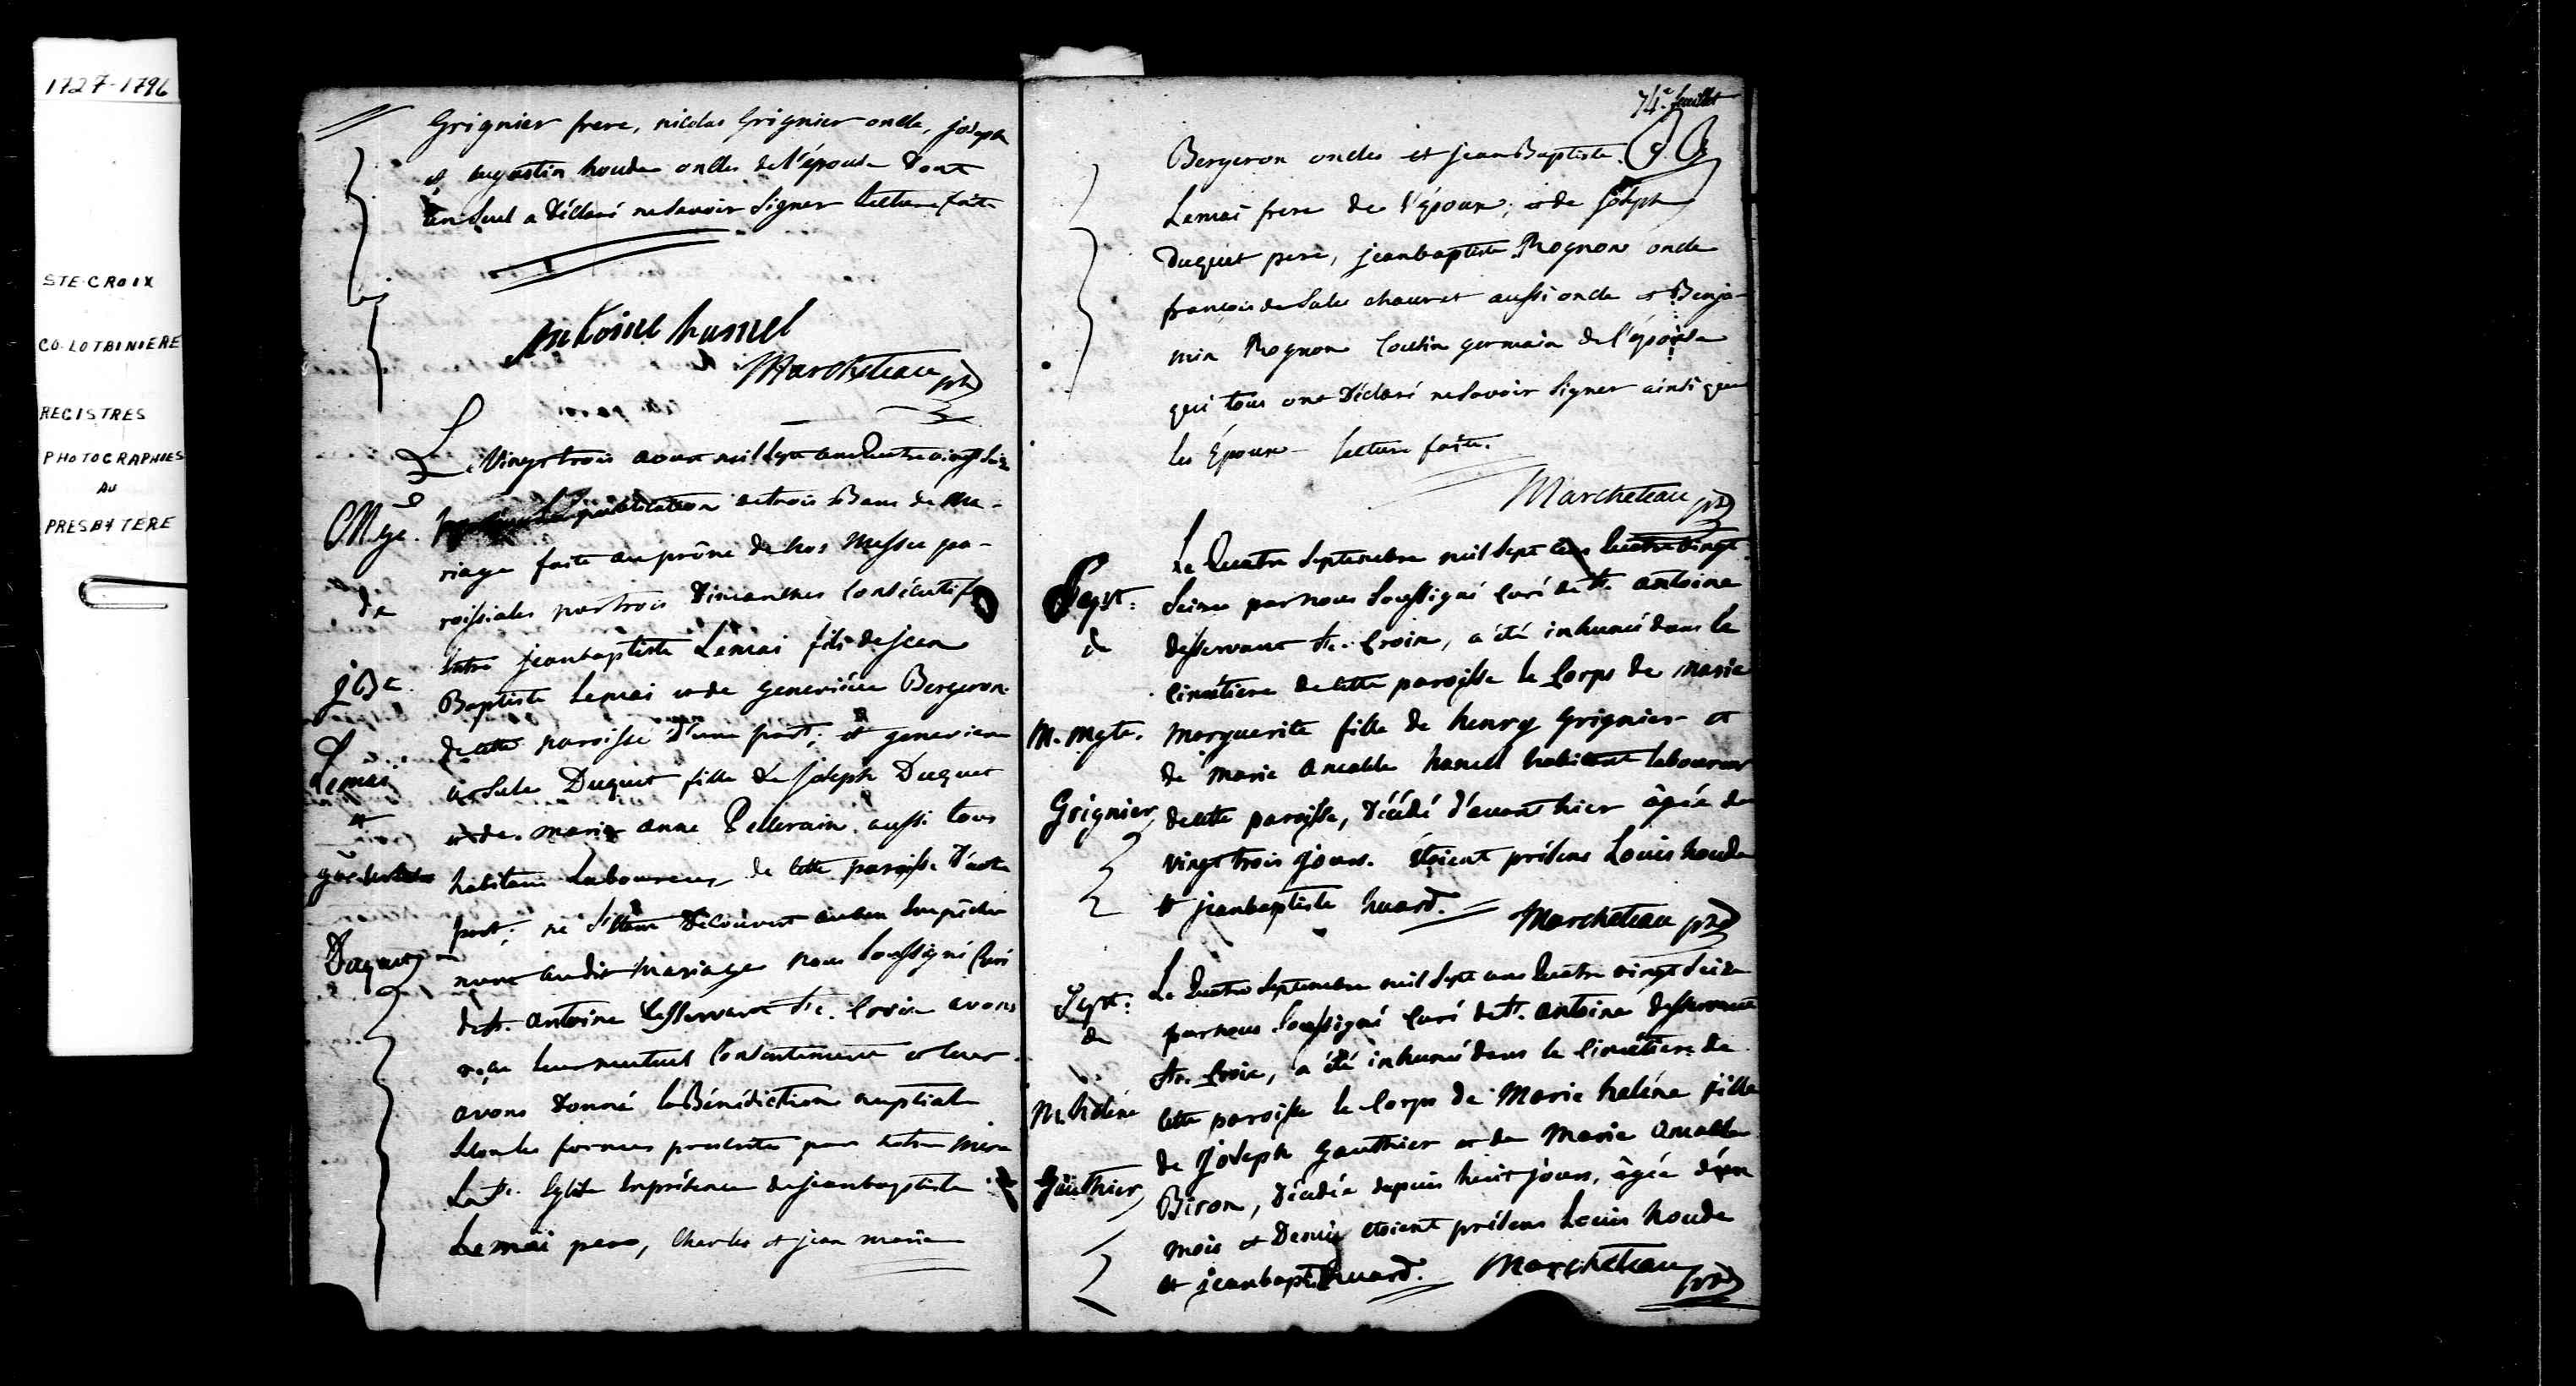 1727-1796
STE-CROIX
CO-LOTBINIERE
REGISTRES
PHOTOGRAPHIES
AU
PRESBYTERE
Grignier frere, nicolas Grignier oncle, joseph
et augustin houde oncles de l'épouse dont
un seul a déclaré ne savoir signer lecture faite
Antoine hamel
Marcheteau ptr
Le vingt trois aout mil sept cent quatre vingt seize
publication de trois Bans de ma-
riage faite au prône de nos Messes pa-
roissiales par trois dimanches consécutifs
entre jeanbaptiste Lemai fils de jean
Baptiste Lemai et de geneviéve Bergeron
de cette paroisse d'une part; et genevieve
ursule Duquet fille de joseph Duquet
et de marie anne Pellerain aussi tous
habitans Laboureurs de cette paroisse d'autre
part; ne s'étant découvert aucun empêche
ment audit mariage nous soussigné Curé
de st. antoine desservant ste. Croix avons
reçu leur mutuel consentement et leur
avons donné la Bénédiction nuptiale
selon les formes prescrites par notre mere
la ste. Eglise en présence de jeanbaptiste
Lemai pere, Charles et jean marie
Mge.
de
j Bte.
Lemai
et
Duquet
74e. feuillet
Bergeron oncles et jean Baptiste
Lemai frere de l'époux; et de joseph
Duquet pere, jeanbaptiste Rognon oncle
francois de Sales chauret aussi oncle et Benja-
min Rognon cousin germain de l'épouse
qui tous ont déclaré ne savoir signer ainsi que
les Epoux - lecture faite.
Marcheteau ptr
Le quatre septembre mil sept cens quatre vingt
seize par nous soussigné curé de st. antoine
desservant ste. Croix, a été inhumé dans le
cimetiere de cette paroisse le corps de marie
marguerite fille de henry Grignier et
de marie amable hamel habitant laboureur
de cette paroisse, décédé d'avant hier âgée de
vingt trois jours. étoient présens Louis houde
et jeanbaptiste huard. Marcheteau ptr
Sept:
de
M. Mgte.
Grignier
Le quatre septembre mil sept cens quatre vingt seize
par nous soussigné curé de st. antoine desservant
ste. Croix, a été inhumé dans le cimetiere de
cette paroisse le corps de Marie heléne fille
de joseph Gauthier et de Marie amable
Biron, décédée depuis huit jours, âgée d'un
mois et Demie étoient présens Louis houde
et jeanbaptiste huard. Marcheteau ptr
Sept:
de
M. heléne
Gauthier